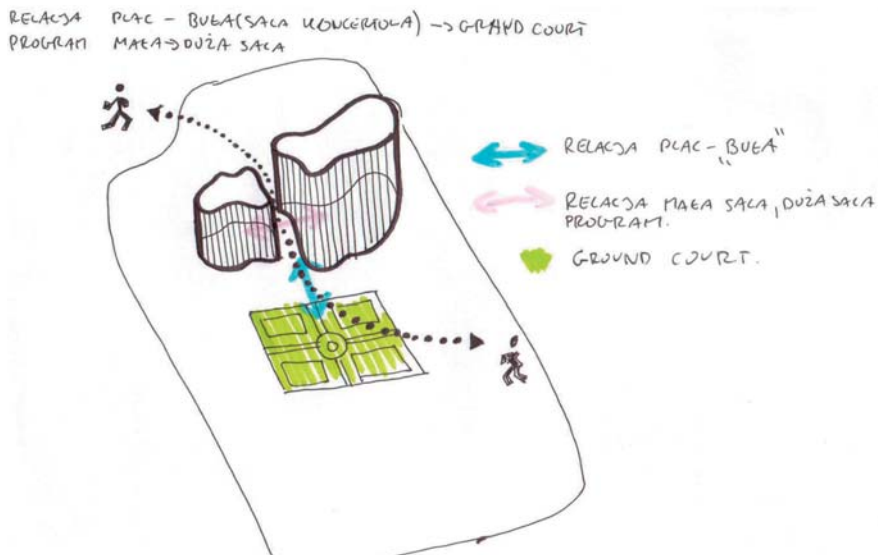 RELACJA PLAC - BUŁA (SALA KONCERTOWA) -> GRAND COURT
PROGRAM MAŁA -> DUŻA SALA
RELACJA PLAC - „BUŁA"
RELACJA MAŁA SALA, DUŻA SALA
PROGRAM.
GROUND COURT.